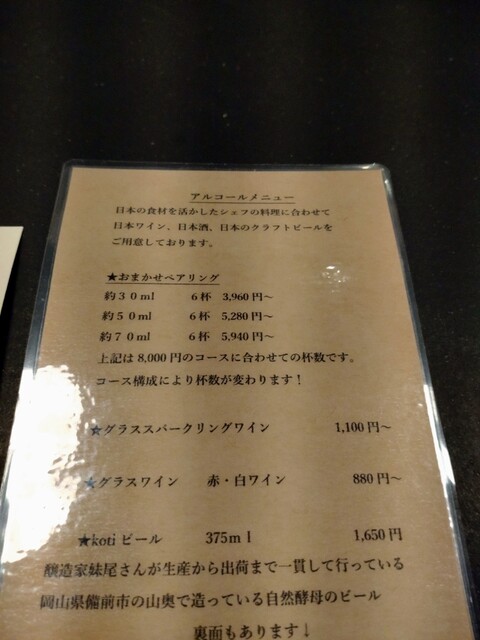 アルコールメニュー
日本の食材を活かしたシェフの料理に合わせて
日本ワイン、日本酒、日本のクラフトビールを
ご用意しております。
★おまかせペアリング
約３０ml 6杯 3,960円～
約５０ml 6杯 5,280円～
約７０ml 6杯 5,940円～
上記は8,000円のコースに合わせての杯数です。
コース構成により杯数が変わります！
★グラススパークリングワイン 1,100円～
★グラスワイン 赤・白ワイン 880円～
★kotiビール 375ml 1,650円
醸造家妹尾さんが生産から出荷まで一貫して行っている
岡山県備前市の山奥で造っている自然酵母のビール
裏面もあります！